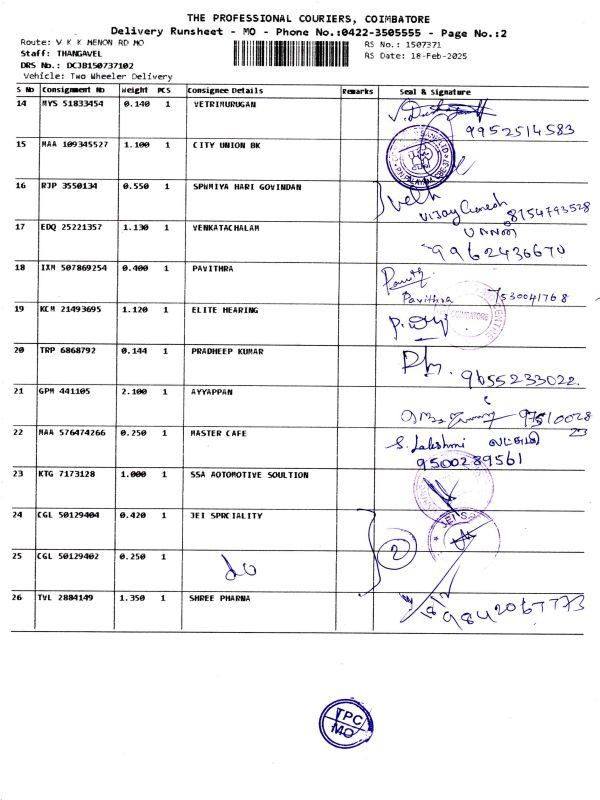 THE PROFESSIONAL COURIERS, COIMBATORE
Delivery Runsheet - MO - Phone No.:0422-3505555 - Page No.:2
Route: V K K MENON RD MO
RS No.: 1507371
Staff: THANGAVEL
RS Date: 18-Feb-2025
DRS No.: DCJB150737102
Vehicle: Two Wheeler Delivery
S No Consignment No Weight PCS Consignee Details Remarks Seal & Signature
14 MYS 51833454 0.140 1 VETRIMURUGAN
9952514583
15 MAA 109345527 1.100 1 CITY UNION BK
16 RJP 3550134 0.550 1 SPWMIYA HARI GOVINDAN
Vijay Ganesh 8154793528
17 EDQ 25221357 1.130 1 VENKATACHALAM
9962436670
18 IXM 507869254 0.400 1 PAVITHRA
Pavithra 7530041768
19 KCM 21493695 1.120 1 ELITE HEARING
COIMBATORE
20 TRP 6868792 0.144 1 PRADHEEP KUMAR
9655233022.
21 GPM 441105 2.100 1 AYYAPPAN
97510028
23
22 MAA 576474266 0.250 1 MASTER CAFE
S. Lakshmi லட்சுமி
9500289561
23 KTG 7173128 1.000 1 SSA AOTOMOTIVE SOULTION
24 CGL 50129404 0.420 1 JEI SPRCIALITY
2
JEI S
25 CGL 50129402 0.250 1
do
26 TVL 2884149 1.350 1 SHREE PHARNA
9842067773
TPC
MO